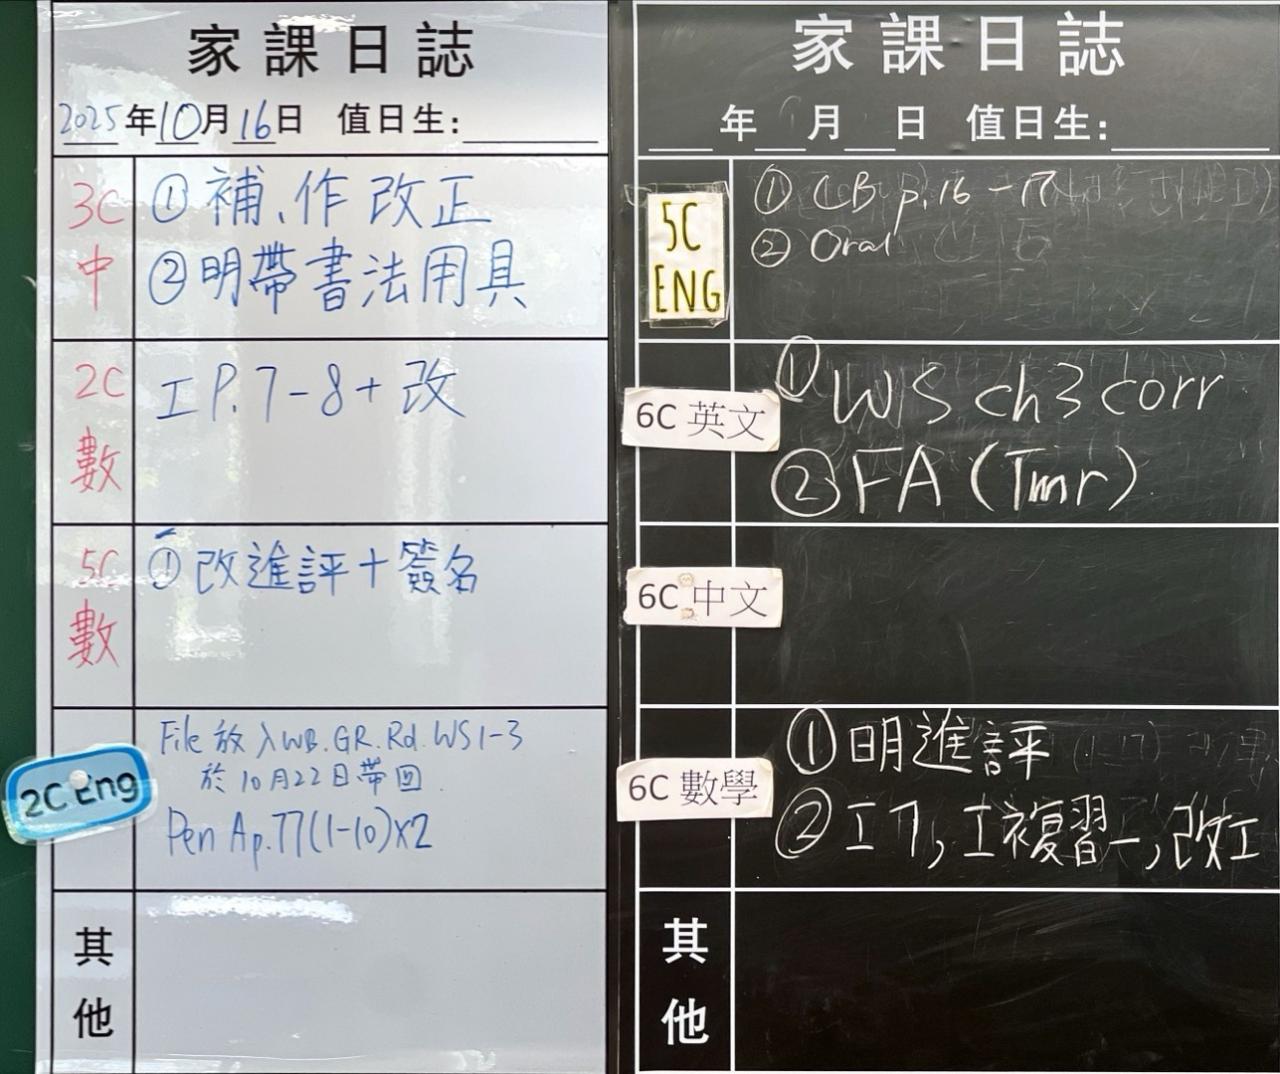 家課日誌
2025年10月16日 值日生:
3C
中
① 補、作改正
② 明帶書法用具
2C
數
工 P.7-8+改
5C
數
① 改進評+簽名
2C Eng
File 放入WB.GR.Rd.WS1-3
於10月22日帶回
Pen A p.77(1-10)x2
其
他
家課日誌
年 月 日 值日生:
5C
ENG
① CB p.16-17
② Oral
6C 英文
① WS ch3 corr
② FA (Tmr)
6C 中文
6C 數學
① 明進評
② 工7, 工複習一, 改工
其
他